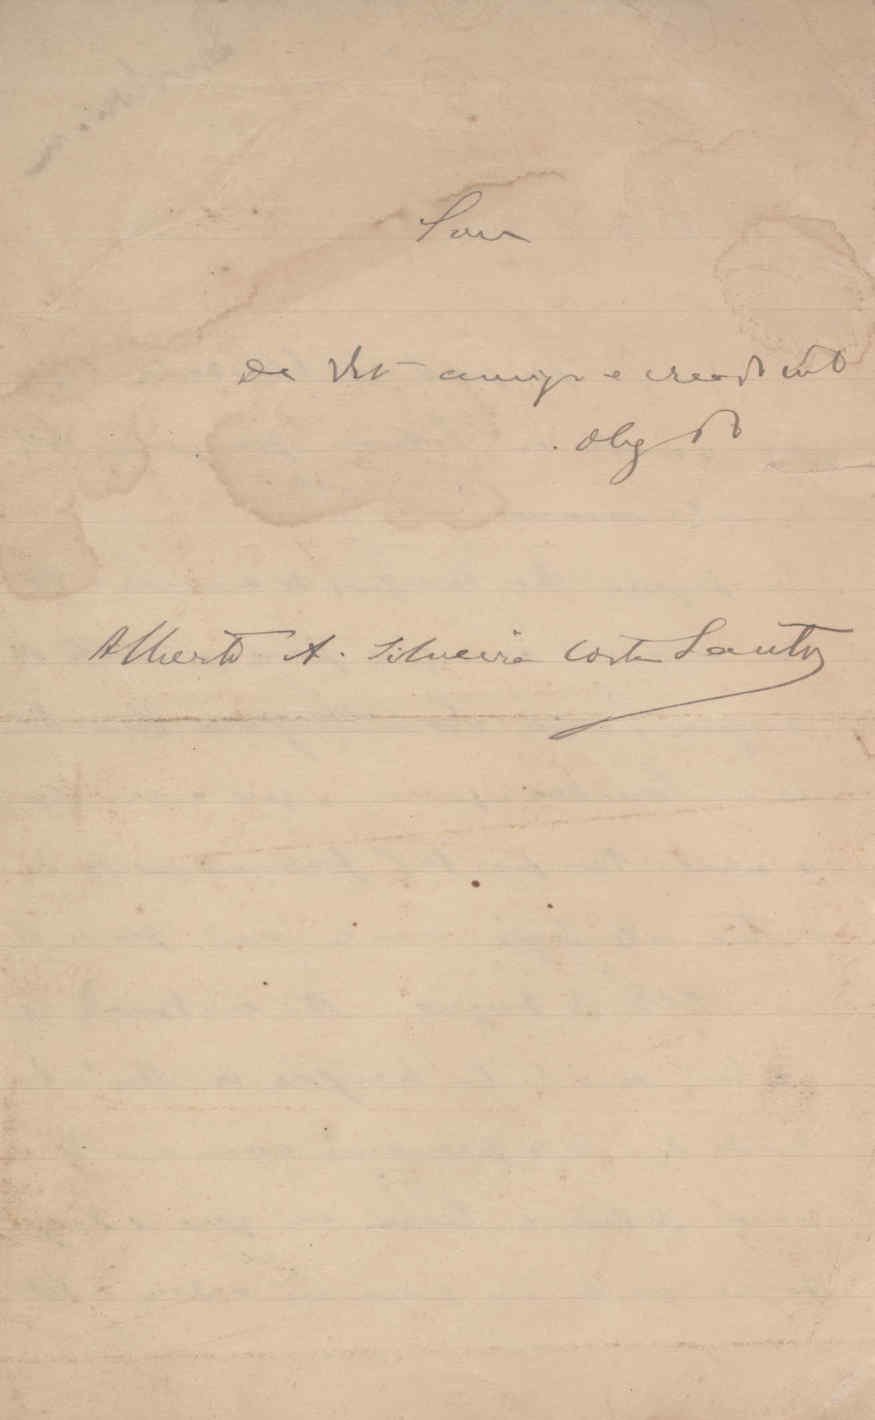 Sou
De V. amigo e creado mto
obgdo
Alberto A. Silveira Costa Santos